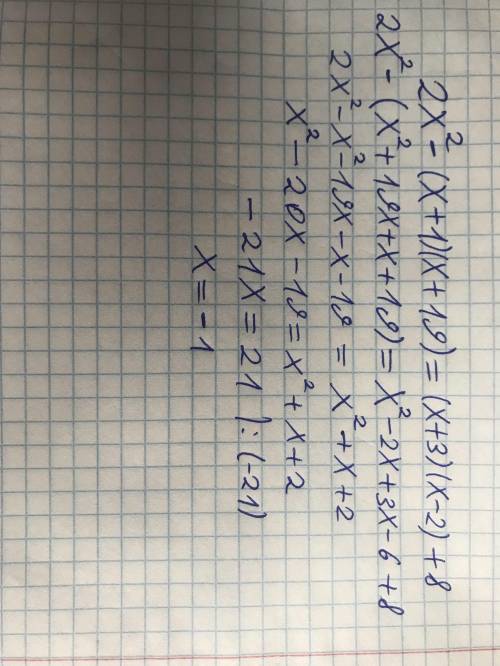 2x² - (x+1)(x+19) = (x+3)(x-2)+8
2x² - (x² + 19x + x + 19) = x² - 2x + 3x - 6 + 8
2x² - x² - 19x - x - 19 = x² + x + 2
x² - 20x - 19 = x² + x + 2
- 21x = 21 ) : (-21)
x = - 1